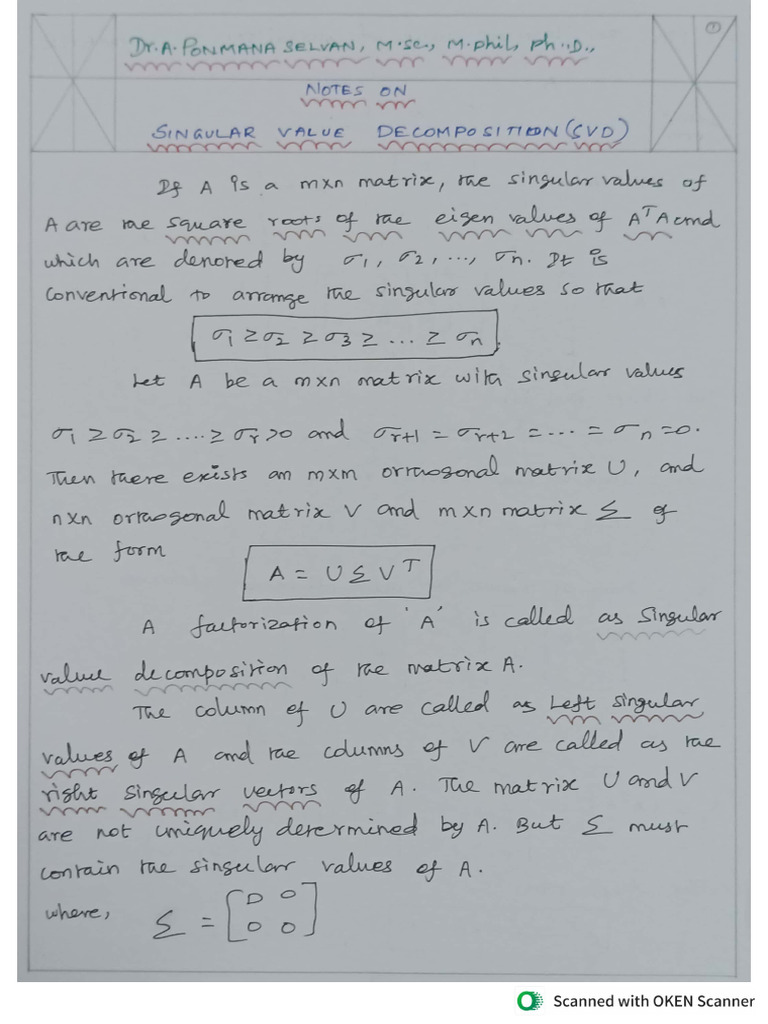 ①
Dr. A. PONMANA SELVAN, M.Sc., M.Phil, Ph.D.,
NOTES ON
SINGULAR VALUE DECOMPOSITION (SVD)
If A is a m×n matrix, the singular values of
A are the square roots of the eigen values of AᵀA and
which are denoted by σ₁, σ₂, ..., σₙ. It is
conventional to arrange the singular values so that
σ₁ ≥ σ₂ ≥ σ₃ ≥ ... ≥ σₙ.
Let A be a m×n matrix with singular values
σ₁ ≥ σ₂ ≥ .... ≥ σᵣ > 0 and σᵣ₊₁ = σᵣ₊₂ = ... = σₙ = 0.
Then there exists an m×m orthogonal matrix U, and
n×n orthogonal matrix V and m×n matrix Σ of
the form
A = UΣVᵀ
A factorization of 'A' is called as singular
value decomposition of the matrix A.
The column of U are called as Left singular
values of A and the columns of V are called as the
right singular vectors of A. The matrix U and V
are not uniquely determined by A. But Σ must
contain the singular values of A.
where, Σ = [D 0
0 0]
Scanned with OKEN Scanner